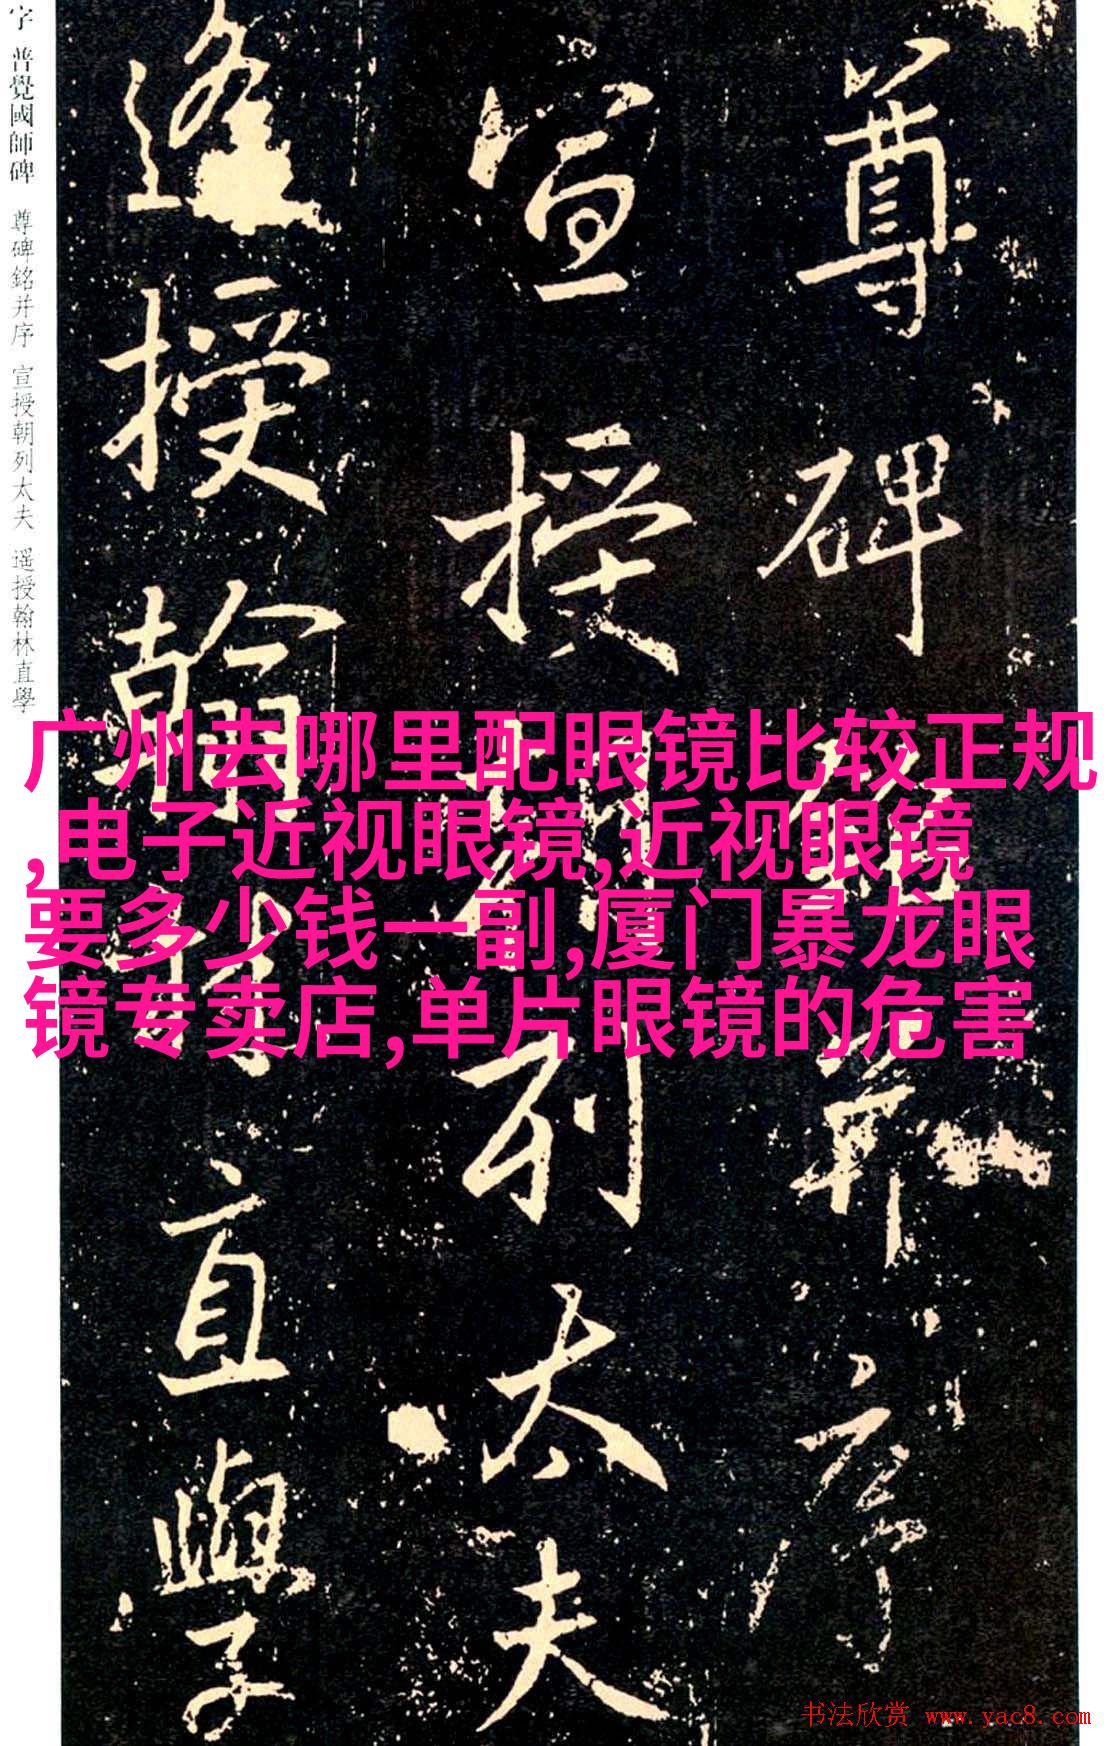 字 普覺國師碑 尊碑銘并序 宣授朝列太夫 遥授翰林直學
尊碑銘并序
宣授朝列太夫
遥授翰林直學
广州去哪里配眼镜比较正规
,电子近视眼镜,近视眼镜
要多少钱一副,厦门暴龙眼
镜专卖店,单片眼镜的危害
书法欣赏 www.yac8.com